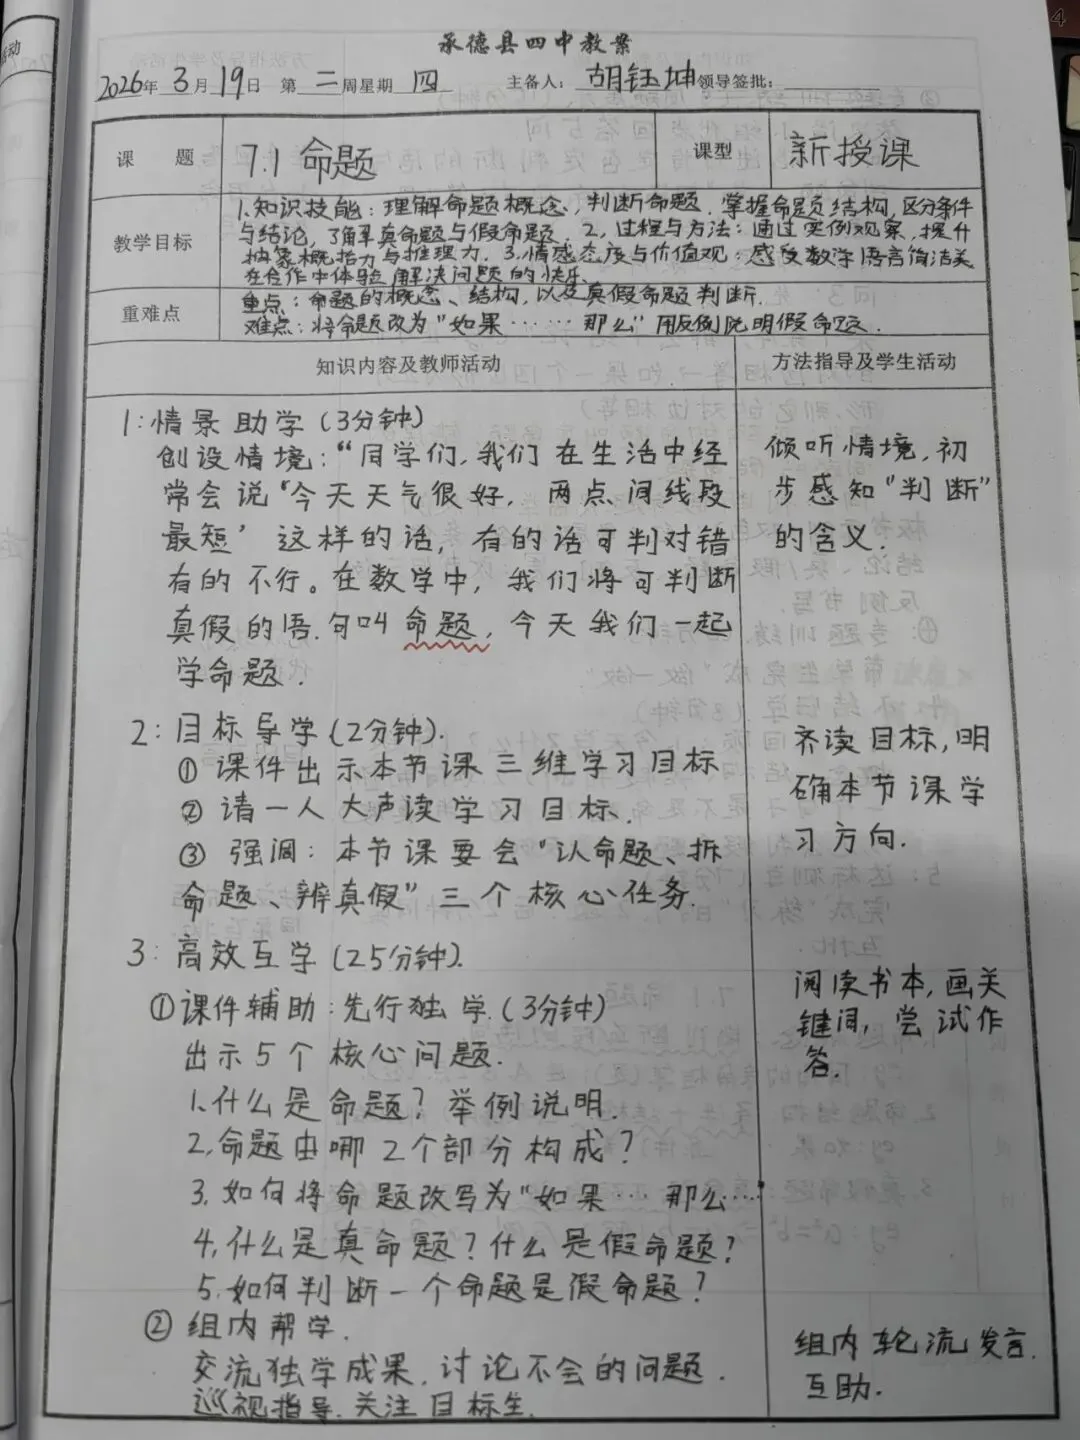 4
承德县四中教案
2026年 3月 19日 第 二 周星期 四 主备人： 胡钰坤 领导签批：
课 题 7.1 命题 课型 新授课
教学目标
1.知识技能：理解命题概念，判断命题．掌握命题结构，区分条件
与结论，了解真命题与假命题．2，过程与方法：通过实例观察，提升
抽象概括力与推理力．3．情感态度与价值观：感受数学语言简洁美
在合作中体验解决问题的快乐．
重难点
重点：命题的概念、结构，以及真假命题判断．
难点：将命题改为"如果……那么"用反例说明假命题．
知识内容及教师活动 方法指导及学生活动
1：情景助学（3分钟）
创设情境："同学们，我们在生活中经
常会说'今天天气很好， 两点间线段
最短'这样的话，有的话可判对错
有的不行。在数学中，我们将可判断
真假的语句叫命题，今天我们一起
学命题．
倾听情境，初
步感知"判断"
的含义．
2：目标导学（2分钟）．
① 课件出示本节课三维学习目标
② 请一人大声读学习目标．
③ 强调：本节课要会"认命题、拆
命题、辨真假"三个核心任务．
齐读目标，明
确本节课学
习方向．
3：高效互学（25分钟）．
①课件辅助：先行独学．（3分钟）
出示5个核心问题．
1．什么是命题？举例说明．
2，命题由哪2个部分构成？
3．如何将命题改写为"如果…那么……
4，什么是真命题？什么是假命题？
5．如何判断一个命题是假命题？
阅读书本，画关
键词，尝试作
答．
② 组内帮学．
交流独学成果．讨论不会的问题．
巡视指导．关注目标生．
组内轮流发言．
互助．